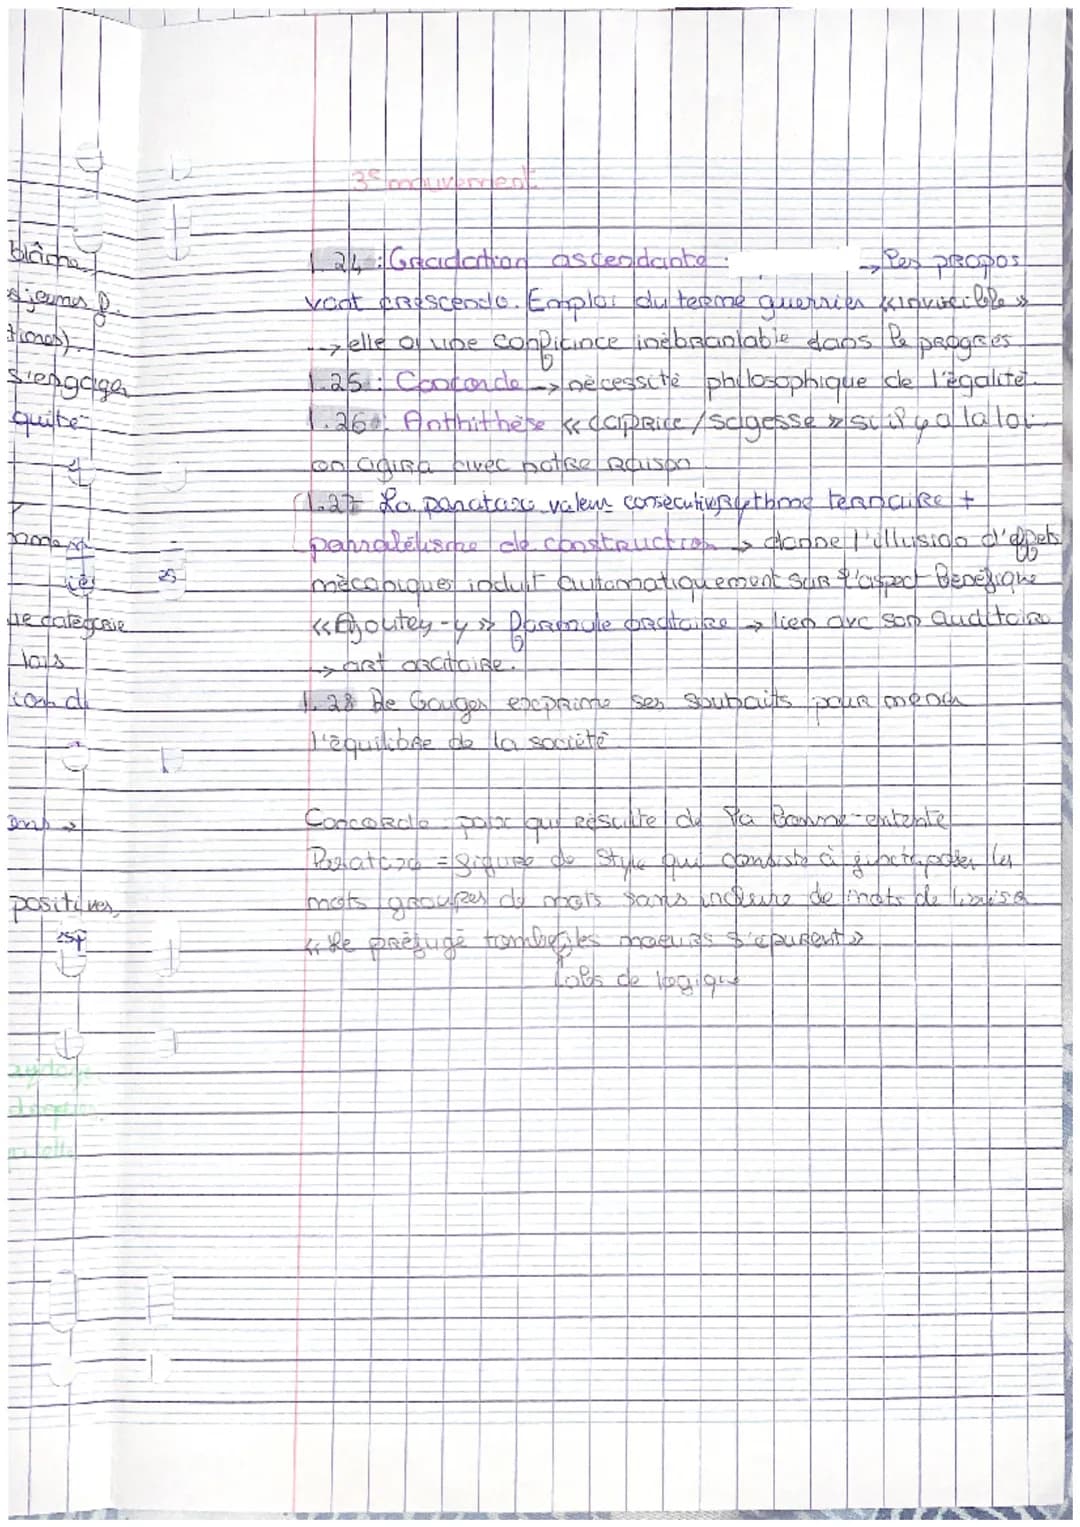 3e mouvement
blâme
l.24 : Gradation ascendante : → les propos
s jeunes f.
vont crescendo. Emploi du terme guerrier « invincible »
tiones).
→ elle a une conficince inébranlable dans le progrès
s'engager
l.25 : Concorde → nécessité philosophique de l'égalité.
quité
l.26 : Anthithèse « caprice / sagesse » s'il y a la loi
on agira avec notre raison
l.27 La parataxe valeur consecutive Rythme ternaire +
parralélisme de construction → donne l'illusion d'effets
25
mécaniques induit automatiquement sur l'aspect Bénéfique
ne categorie
« Ajoutez-y » Formule oratoire → lien avc son auditoire
lois
→ art oratoire.
ion d
l.28 De Gouges exprime ses souhaits pour
l'équilibre de la société
Concorde : paix qui résulte de la bonne-entente
Parataxe = figure de style qui consiste à les
positives,
mots groupes de mots sans inclure de mots de liaison
esp
« Le préjugé tombe, les moeurs s'épurent »
lobs de logique